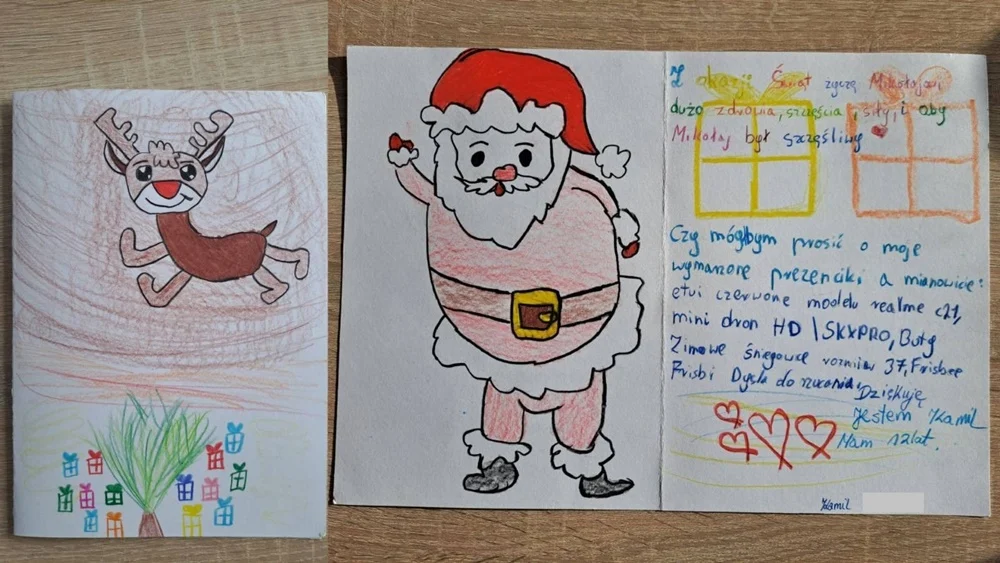 Z okazji Świąt życzę Mikołajowi
dużo zdrowia, szczęścia, siły, i oby
Mikołaj był szczęśliwy
Czy mógłbym prosić o moje
wymarzone prezenciki a mianowicie:
etui czerwone modelu realme c21,
mini dron HD \SKXPRO, Buty
Zimowe śniegowce rozmiar 37, Frisbee
Frisbi Dysk do rzucania.
Dziękuję
Jestem Kamil
Mam 12 lat.
Kamil